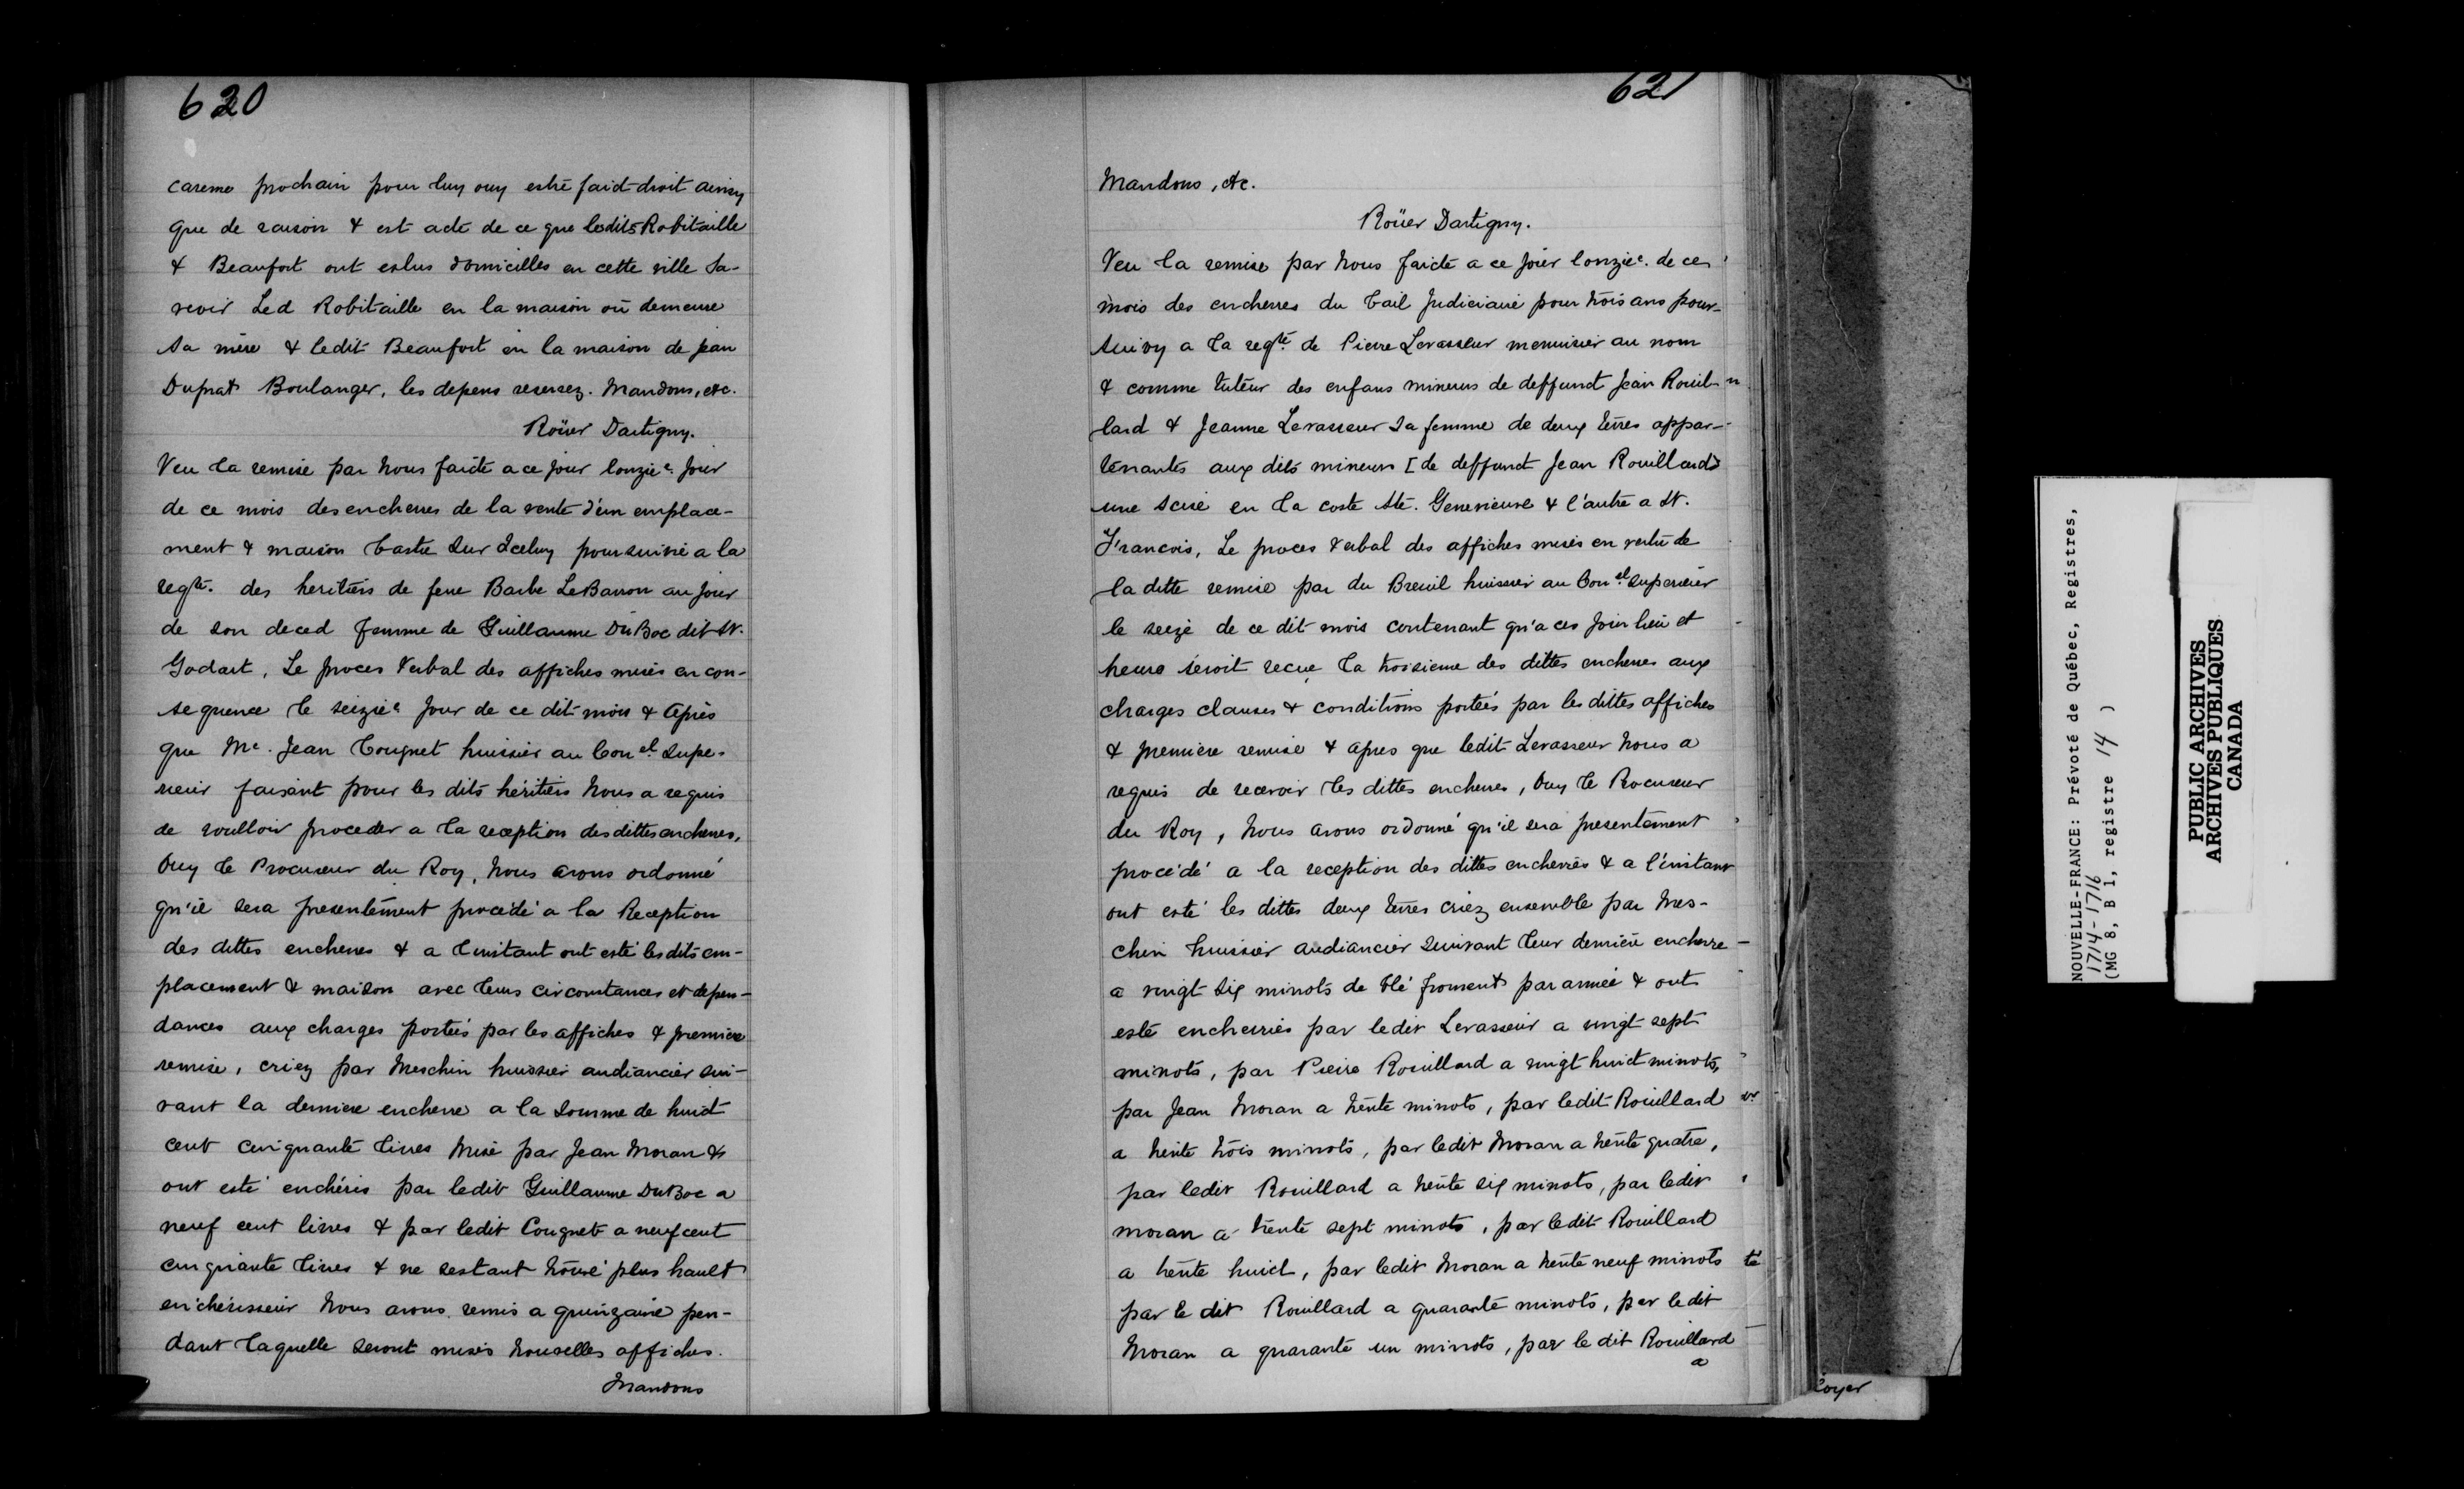 620
careme prochain pour luy ouy estre faict droit ainsy
que de raison & est acte de ce que lesdits Robitaille
& Beaufort ont eslus domicilles en cette ville Sa-
voir Led Robitaille en la maison où demeure
sa mère & ledit Beaufort en la maison de Jean
Duprat Boulanger, les depens reservez. Mandons, etc.
Roüer Dartigny.
Veu la remise par nous faicte a ce jour lonzie. jour
de ce mois des encherres de la vente d'un emplace-
ment & maison bastie sur Iceluy poursuivie a la
reqte. des heritiers de feue Barbe LeBarron au jour
de son deced femme de Guillaume DuBoc dit St.
Godart, Le proces Verbal des affiches mises en con-
sequence le seizie jour de ce dit mois & après
que Me. Jean Congnet huissier au Conel. Supe-
rieur faisant pour les dits héritiers nous a requis
de voulloir proceder a la reception desdittes encherres,
Ouy le Procureur du Roy, nous avons ordonné
qu'il sera presentement procédé a la Reception
des dittes encherres & a l'instant ont esté les dits em-
placement & maison avec leurs circonstances et depen-
dances aux charges portées par les affiches & premiere
remise, criez par Meschin huissier audiancier sui-
vant la derniere encherre a la somme de huict
cent cinquante livres mise par Jean Moran &
ont esté enchéris par ledit Guillaume DuBoc a
neuf cent livres & par ledit Congnet a neuf cent
cinquante livres & ne s'estant trouvé plus hault
enchérisseur nous avons remis a quinzaine pen-
dant laquelle seront mises nouvelles affiches.
Mandons
621
Mandons, etc.
Roüer Dartigny.
Veu la remise par nous faicte a ce jour lonzie. de ce
mois des encherres du bail judiciaire pour trois ans pour-
suivy a la reqte. de Pierre Levasseur menuisier au nom
& comme tuteur des enfans mineurs de deffunct Jean Rouil-
lard & Jeanne Levasseur sa femme de deux terres appar-
tenantes aux dits mineurs [de deffunct Jean Rouillard]
une scise en la coste Ste. Genevieuve & l'autre a St.
Francois, Le proces Verbal des affiches mises en vertu de
la ditte remise par du Breuil huissier au Conel Superieur
le seize de ce dit mois contenant qu'a ces jour lieu et
heure seroit reçue la troisieme des dittes encherres aux
charges clauses & conditions portées par les dittes affiches
& premiere remise & apres que ledit Levasseur nous a
requis de recevoir les dittes encherres, Ouy le Procureur
du Roy, nous avons ordonné qu'il sera presentement
procédé a la reception des dittes encherres & a l'instant
ont esté les dittes deux terres criez ensemble par Mes-
chin huissier audiancier suivant leur derniere encherre
a vingt six minots de blé froment par année & ont
esté encherries par ledit Levasseur a vingt sept
minots, par Pierre Rouillard a vingt huict minots,
par Jean Moran a trente minots, par ledit Rouillard
a trente trois minots, par ledit Moran a trente quatre,
par ledit Rouillard a trente six minots, par ledit
moran a trente sept minots, par ledit Rouillard
a trente huict, par ledit Moran a trente neuf minots
par le dit Rouillard a quarante minots, par ledit
Moran a quarante un minots, par le dit Rouillard
a
NOUVELLE-FRANCE: Prévoté de Québec, Registres,
1714-1716
(MG 8, B 1, registre 14 )
PUBLIC ARCHIVES
ARCHIVES PUBLIQUES
CANADA